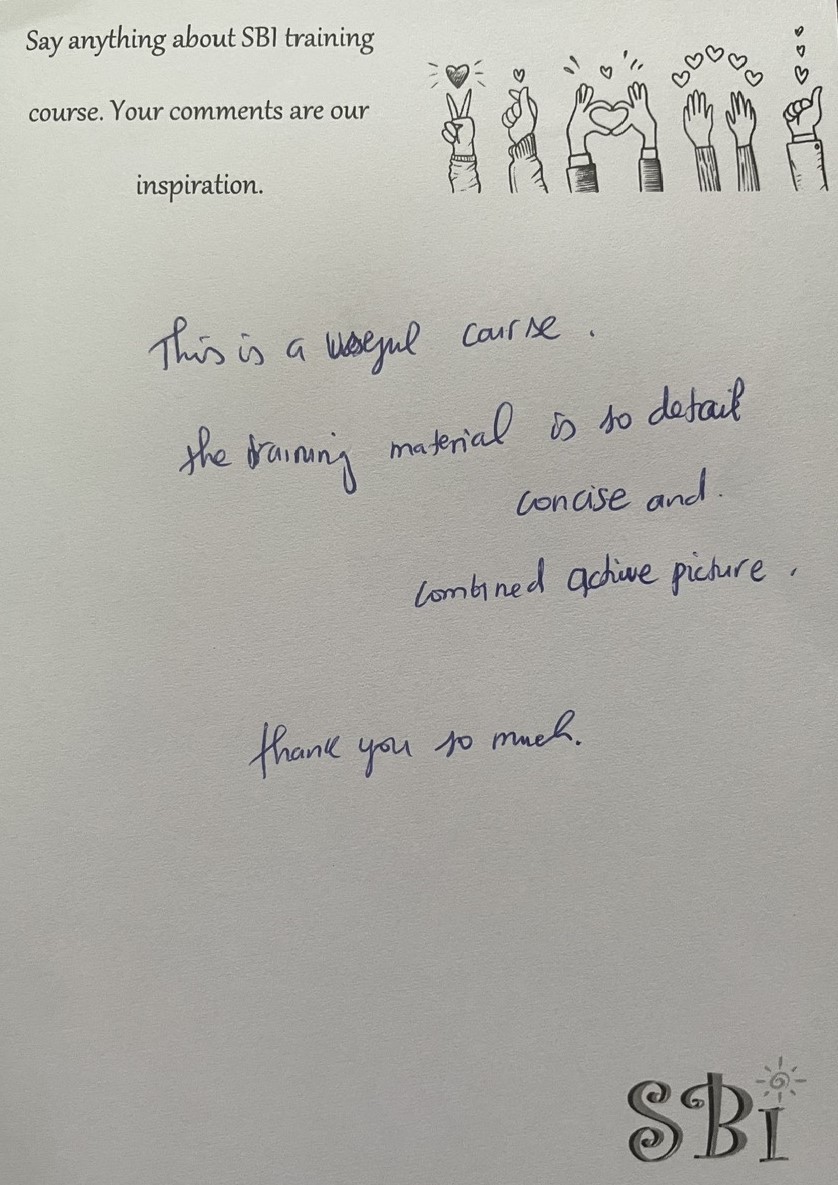 Say anything about SBI training
course. Your comments are our
inspiration.
This is a useful course.
the training material is so detail
concise and.
combined active picture.
thank you so much.
SBI